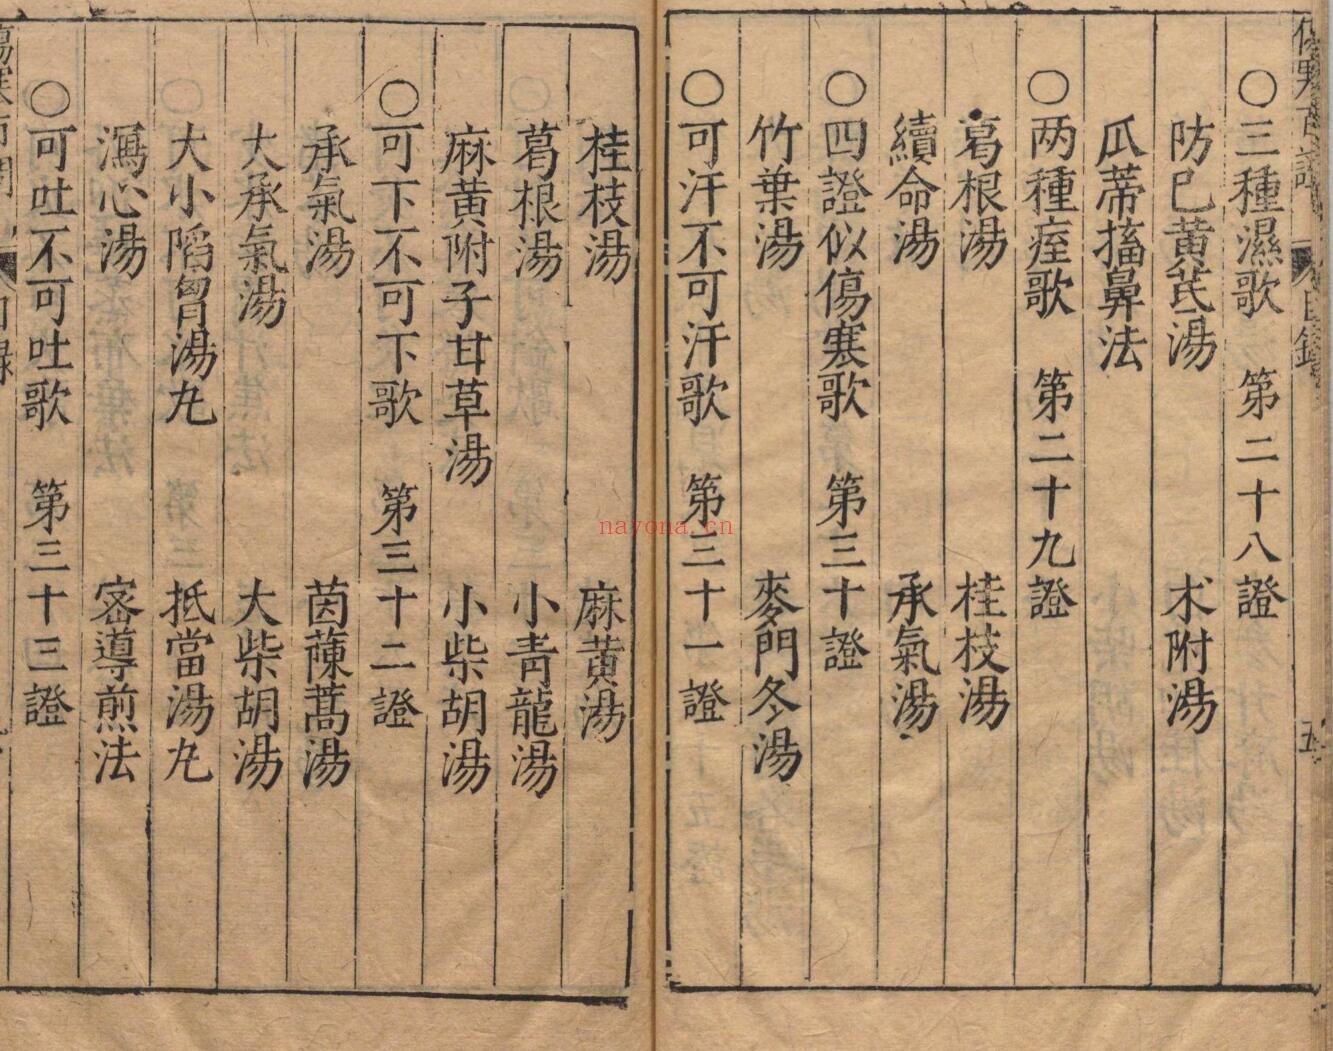 ○三種濕歌　第二十八證
防巳黄芪湯　术附湯
瓜蒂搐鼻法
○两種痓歌　第二十九證
葛根湯　桂枝湯
續命湯　承氣湯
○四證似傷寒歌　第三十證
竹葉湯　麥門冬湯
○可汗不可汗歌　第三十一證
桂枝湯　麻黄湯
葛根湯　小青龍湯
麻黄附子甘草湯　小柴胡湯
○可下不可下歌　第三十二證
承氣湯　茵蔯蒿湯
大承氣湯　大柴胡湯
大小陷胷湯丸　抵當湯丸
瀉心湯　宻導煎法
○可吐不可吐歌　第三十三證
nayona.cn